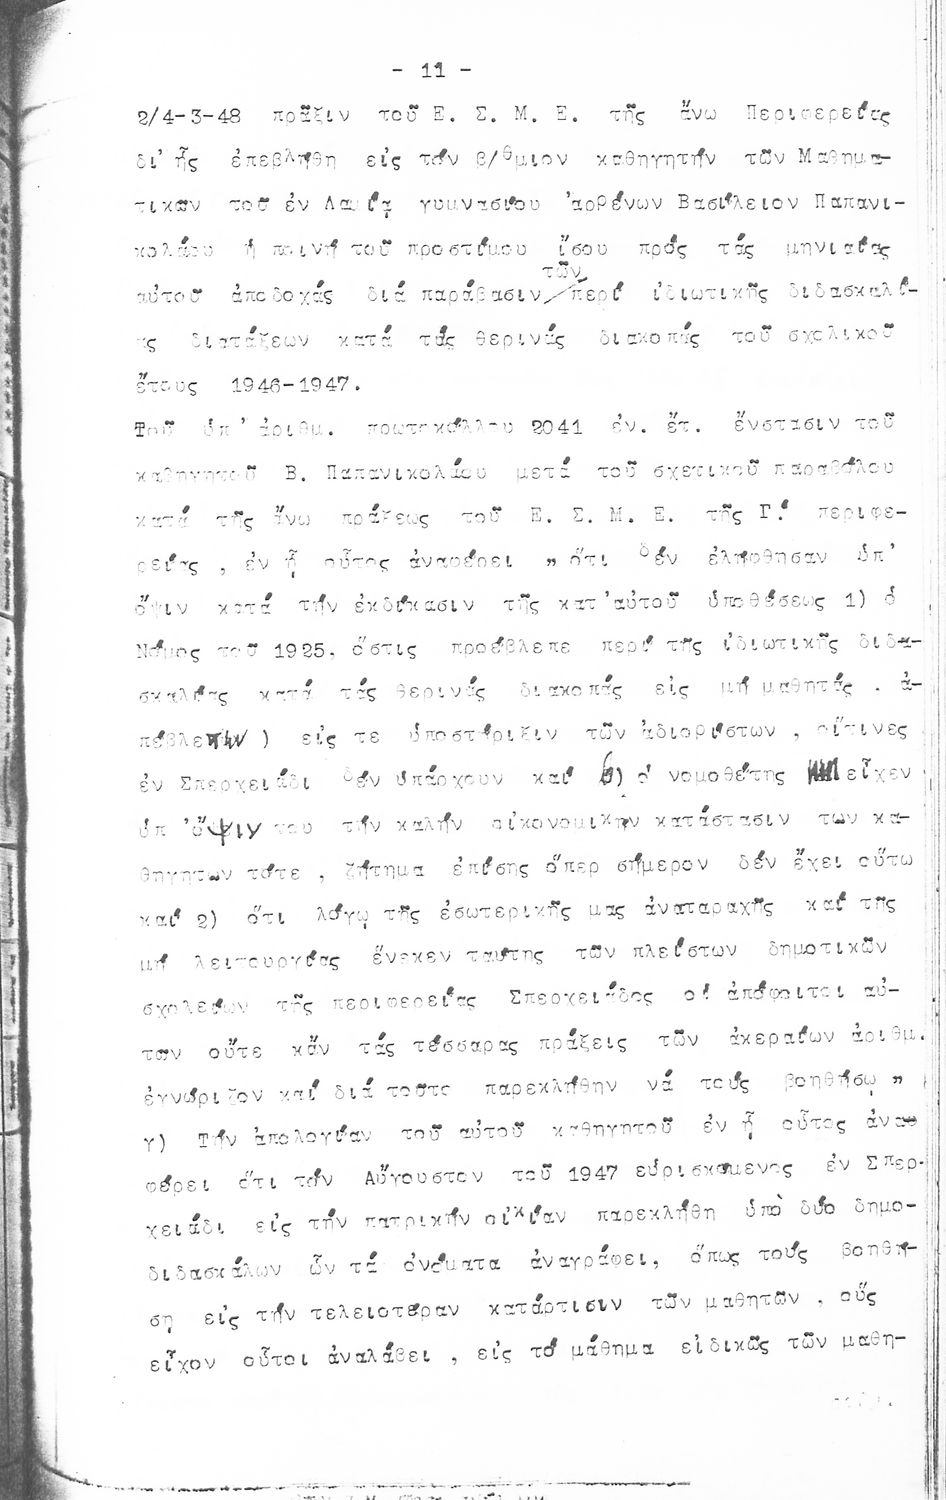 - 11 -
2/4-3-48 πρᾶξιν τοῦ Ε. Σ. Μ. Ε. τῆς ἄνω Περιφερείας
δι' ἧς ἐπεβλήθη εἰς τόν β/θμιον καθηγητήν τῶν Μαθημα-
τικῶν τοῦ ἐν Λαμίᾳ γυμνασίου ἀρρένων Βασίλειον Παπανι-
κολάου ἡ ποινή τοῦ προστίμου ἴσου πρός τάς μηνιαίας
αὐτοῦ ἀποδοχάς διά παράβασιν τῶν περί ἰδιωτικῆς διδασκαλί-
ας διατάξεων κατά τάς θερινάς διακοπάς τοῦ σχολικοῦ
ἔτους 1946-1947.
Τοῦ ὑπ' ἀριθμ. πρωτοκόλλου 2041 ἐν. ἔτ. ἔνστασιν τοῦ
καθηγητοῦ Β. Παπανικολάου μετά τοῦ σχετικοῦ παραβόλου
κατά τῆς ἄνω πράξεως τοῦ Ε. Σ. Μ. Ε. τῆς Γ! περιφε-
ρείας , ἐν ᾗ οὗτος ἀναφέρει " ὅτι δέν ἐλήφθησαν ὑπ'
ὄψιν κατά τήν ἐκδίκασιν τῆς κατ'αὐτοῦ ὑποθέσεως 1) ὁ
Νόμος τοῦ 1925, ὅστις προέβλεπε περί τῆς ἰδιωτικῆς διδα-
σκαλίας κατά τάς θερινάς διακοπάς εἰς μή μαθητάς . ἀ-
πέβλεπεν ) εἰς τε ὑποστήριξιν τῶν ἀδιορίστων , οἵτινες
ἐν Σπερχειάδι δέν ὑπάρχουν καί β) ὁ νομοθέτης εἶχεν
ὑπ 'ὄψιν του τήν καλήν οἰκονομικήν κατάστασιν των κα-
θηγητων τότε , ζήτημα ἐπίσης ὅπερ σήμερον δέν ἔχει οὕτω
καί 2) ὅτι λόγῳ τῆς ἐσωτερικῆς μας ἀναταραχῆς καί τῆς
μή λειτουργίας ἕνεκεν ταύτης τῶν πλείστων δημοτικῶν
σχολείων τῆς περιφερείας Σπερχειάδος οἱ ἀπόφοιτοι αὐ-
των οὔτε κἄν τάς τέσσαρας πράξεις τῶν ἀκεραίων ἀριθμ.
ἐγνώριζον καί διά τοῦτο παρεκλήθην νά τούς βοηθήσω "
γ) Τήν ἀπολογίαν τοῦ αὐτοῦ καθηγητοῦ ἐν ᾗ οὗτος ἀνα-
φέρει ὅτι τόν Αὔγουστον τοῦ 1947 εὑρισκόμενος ἐν Σπερ-
χειάδι εἰς τήν πατρικήν οἰκίαν παρεκλήθη ὑπὸ δύο δημο-
διδασκάλων ὧν τά ὀνόματα ἀναγράφει, ὅπως τούς βοηθή-
ση εἰς τήν τελειοτέραν κατάρτισιν τῶν μαθητῶν , οὕς
εἶχον οὗτοι ἀναλάβει , εἰς τό μάθημα εἰδικῶς τῶν μαθη-